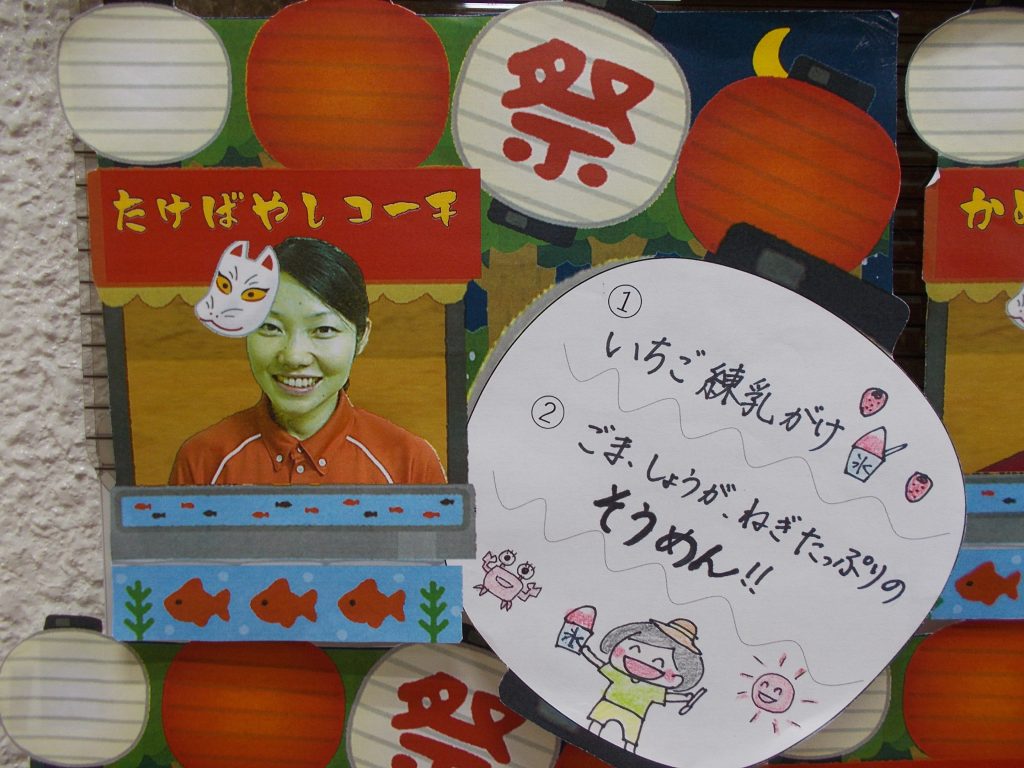 祭
たけばやしコーチ
かめ
①
いちご練乳がけ
氷
②
ごま、しょうが、ねぎたっぷりの
そうめん!!
氷
祭